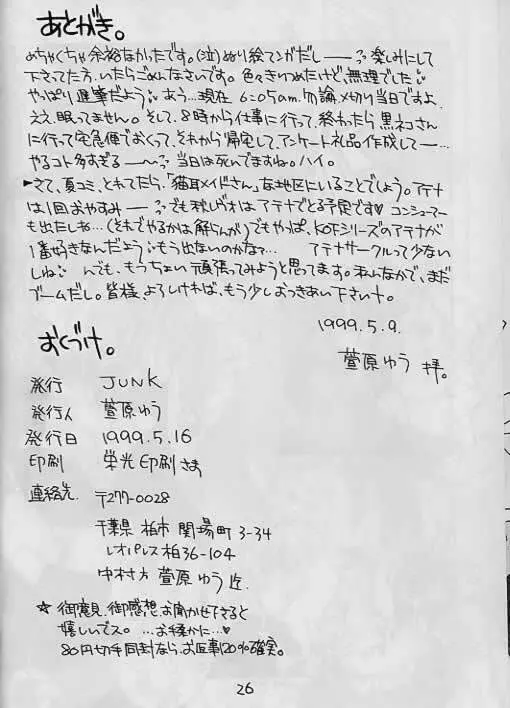 あとがき。
めちゃくちゃ余裕なかったです。(泣)ぬり絵マンガだし——?? 楽しみにして
下さってた方、いたらごめんなさいです。色々きりつめたけど、無理でした
やっぱり遅筆だよう あう…現在 6:05am. 勿論〆切り当日ですよ
ええ、眠ってません。そして、8時から仕事に行って、終わったら黒ネコさん
に行って宅急便でおくって、それから帰宅して、アンケート礼品作成して——…
やるコト多すぎる——〜?? 当日は死んでますね。ハイ。
►さて、夏コミ、とれてたら、「猫耳メイドさん」な地区にいることでしょう。アテナ
は1回おやすみ——?? でも秋レヴォはアテナでとる予定です♥ コンシューマー
も出たしね…(それでやるかは解らんが)でもやっぱ、KOFシリーズのアテナが
1番好きなんだよう もう出ないのかなァ… アテナサークルって少ない
しね んでも、もうちょい頑張ってみようと思ってます。私いなかで、まだ
ブームだし。皆様、よろしければ、もう少しおつきあい下さいナ。
1999.5.9.
萱原ゆう 拝。
おくづけ。
発行 JUNK
発行人 萱原ゆう
発行日 1999.5.16
印刷 栄光印刷さま
連絡先 〒277-0028
千葉県 柏市 関場町 3-34
レオパレス柏36-104
中村方 萱原ゆう 迄.
☆ 御意見、御感想、お聞かせ下さると
嬉しいでス。…お手柔かに…♥
80円切手同封なら、お返事120%確実。
26